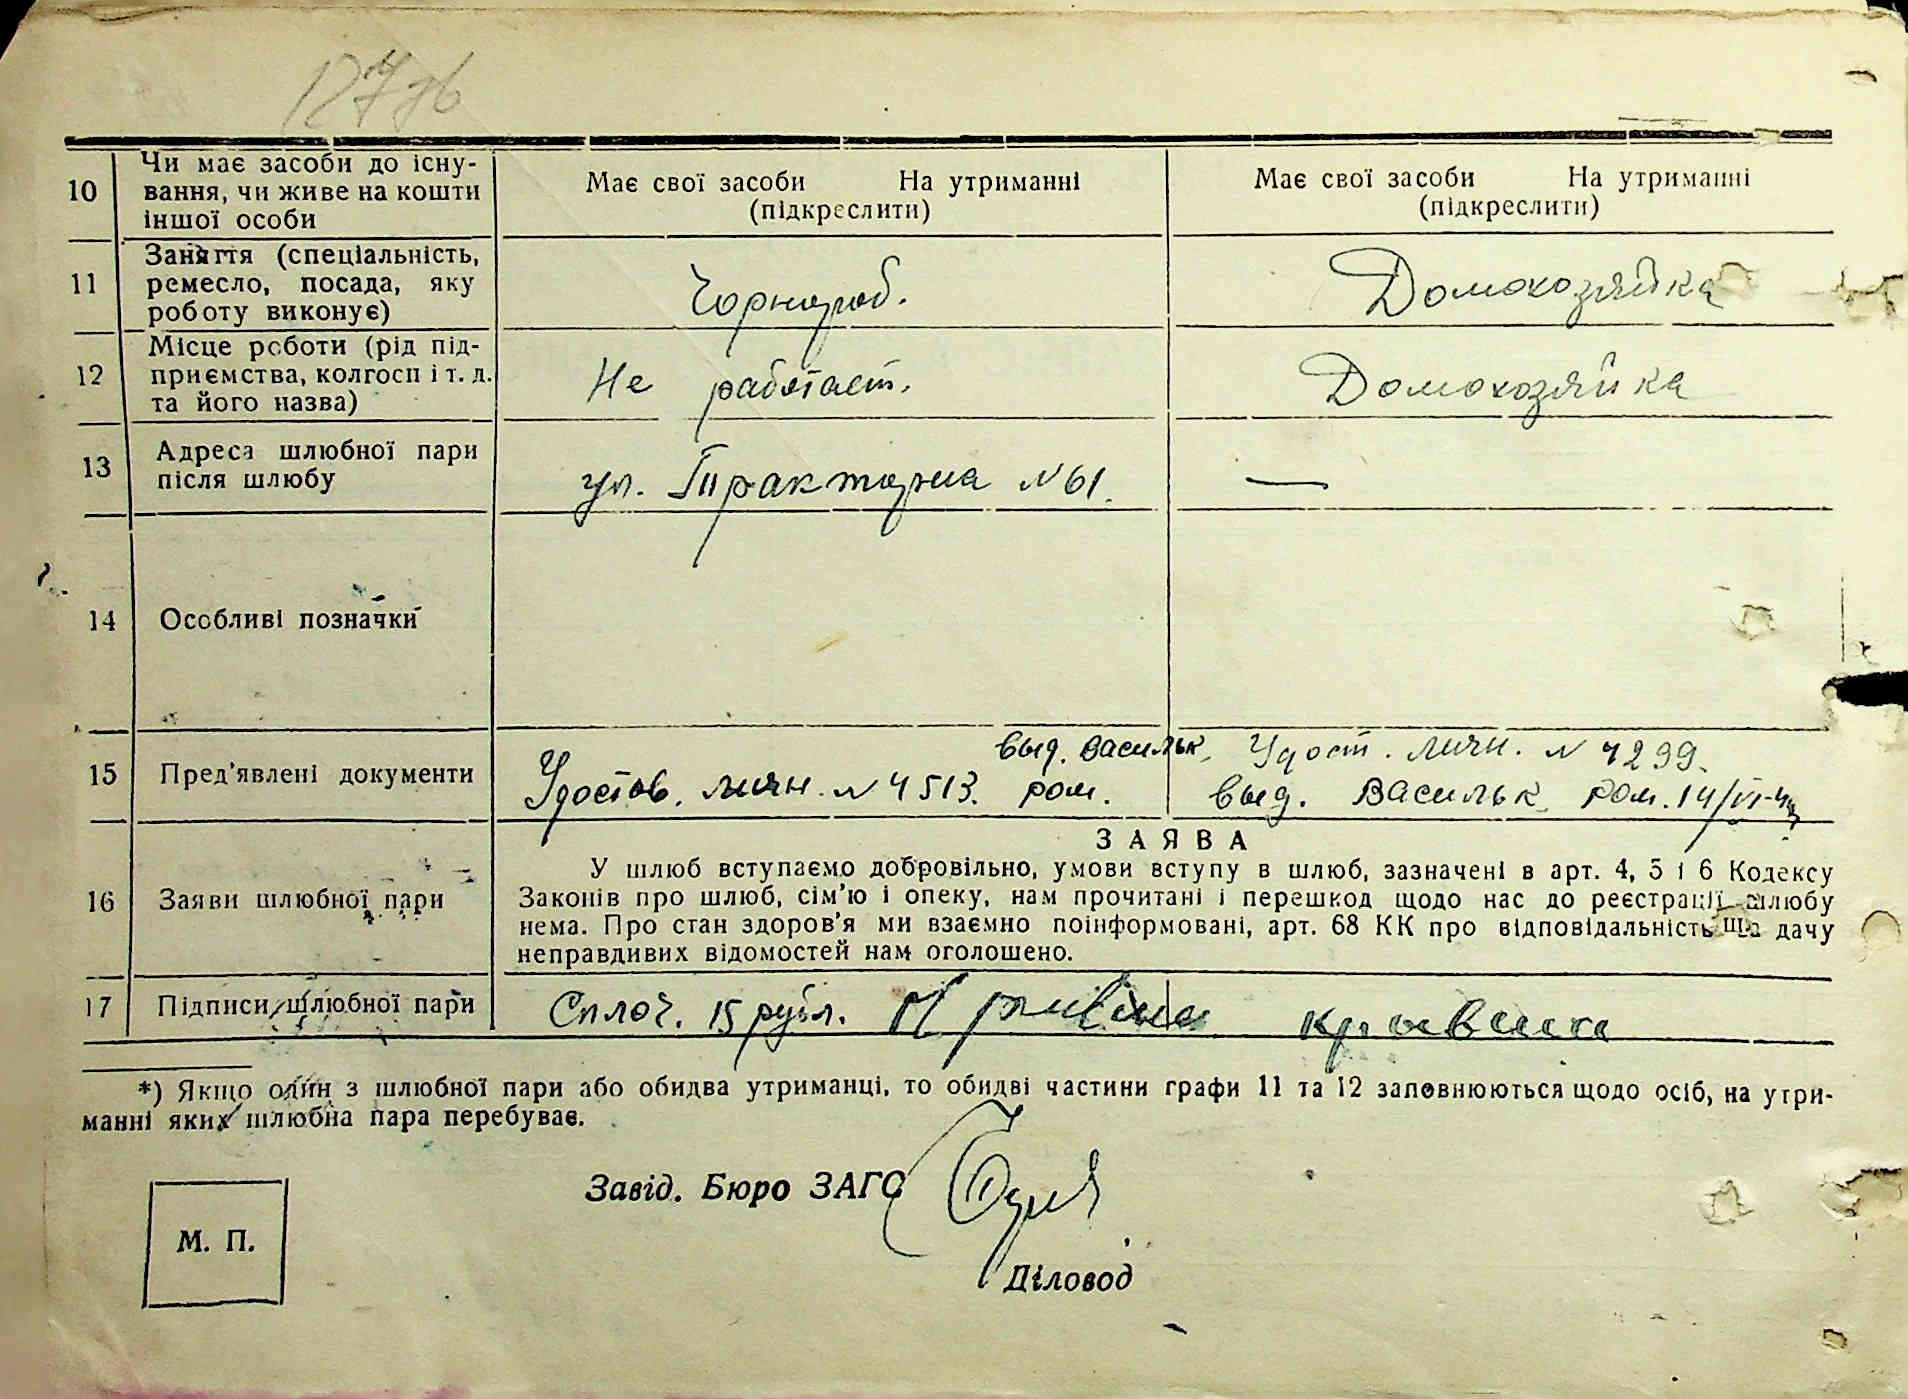 127 зв
10 Чи має засоби до існу-
вання, чи живе на кошти
іншої особи
Має свої засоби На утриманні
(підкреслити)
Має свої засоби На утриманні
(підкреслити)
11 Заняття (спеціальність,
ремесло, посада, яку
роботу виконує)
Чорнороб.
Домохозяйка
12 Місце роботи (рід під-
приємства, колгосп і т. д.
та його назва)
Не работает.
Домохозяйка
13 Адреса шлюбної пари
після шлюбу
ул. Тракторна №61.
—
14 Особливі позначки
15 Пред'явлені документи
выд. Васильк.
Удостов. личн. № 4513. ром.
Удост. личн. № 4299.
выд. Васильк. ром. 14/VI-
16 Заяви шлюбної пари
ЗАЯВА
У шлюб вступаємо добровільно, умови вступу в шлюб, зазначені в арт. 4, 5 і 6 Кодексу
Законів про шлюб, сім'ю і опеку, нам прочитані і перешкод щодо нас до реєстрації шлюбу
нема. Про стан здоров'я ми взаємно поінформовані, арт. 68 КК про відповідальність за дачу
неправдивих відомостей нам оголошено.
17 Підписи шлюбної пари
Сплоч. 15 рубл.
*) Якщо один з шлюбної пари або обидва утриманці, то обидві частини графи 11 та 12 заповнюються щодо осіб, на утри-
манні яких шлюбна пара перебуває.
Завід. Бюро ЗАГС
М. П.
Діловод